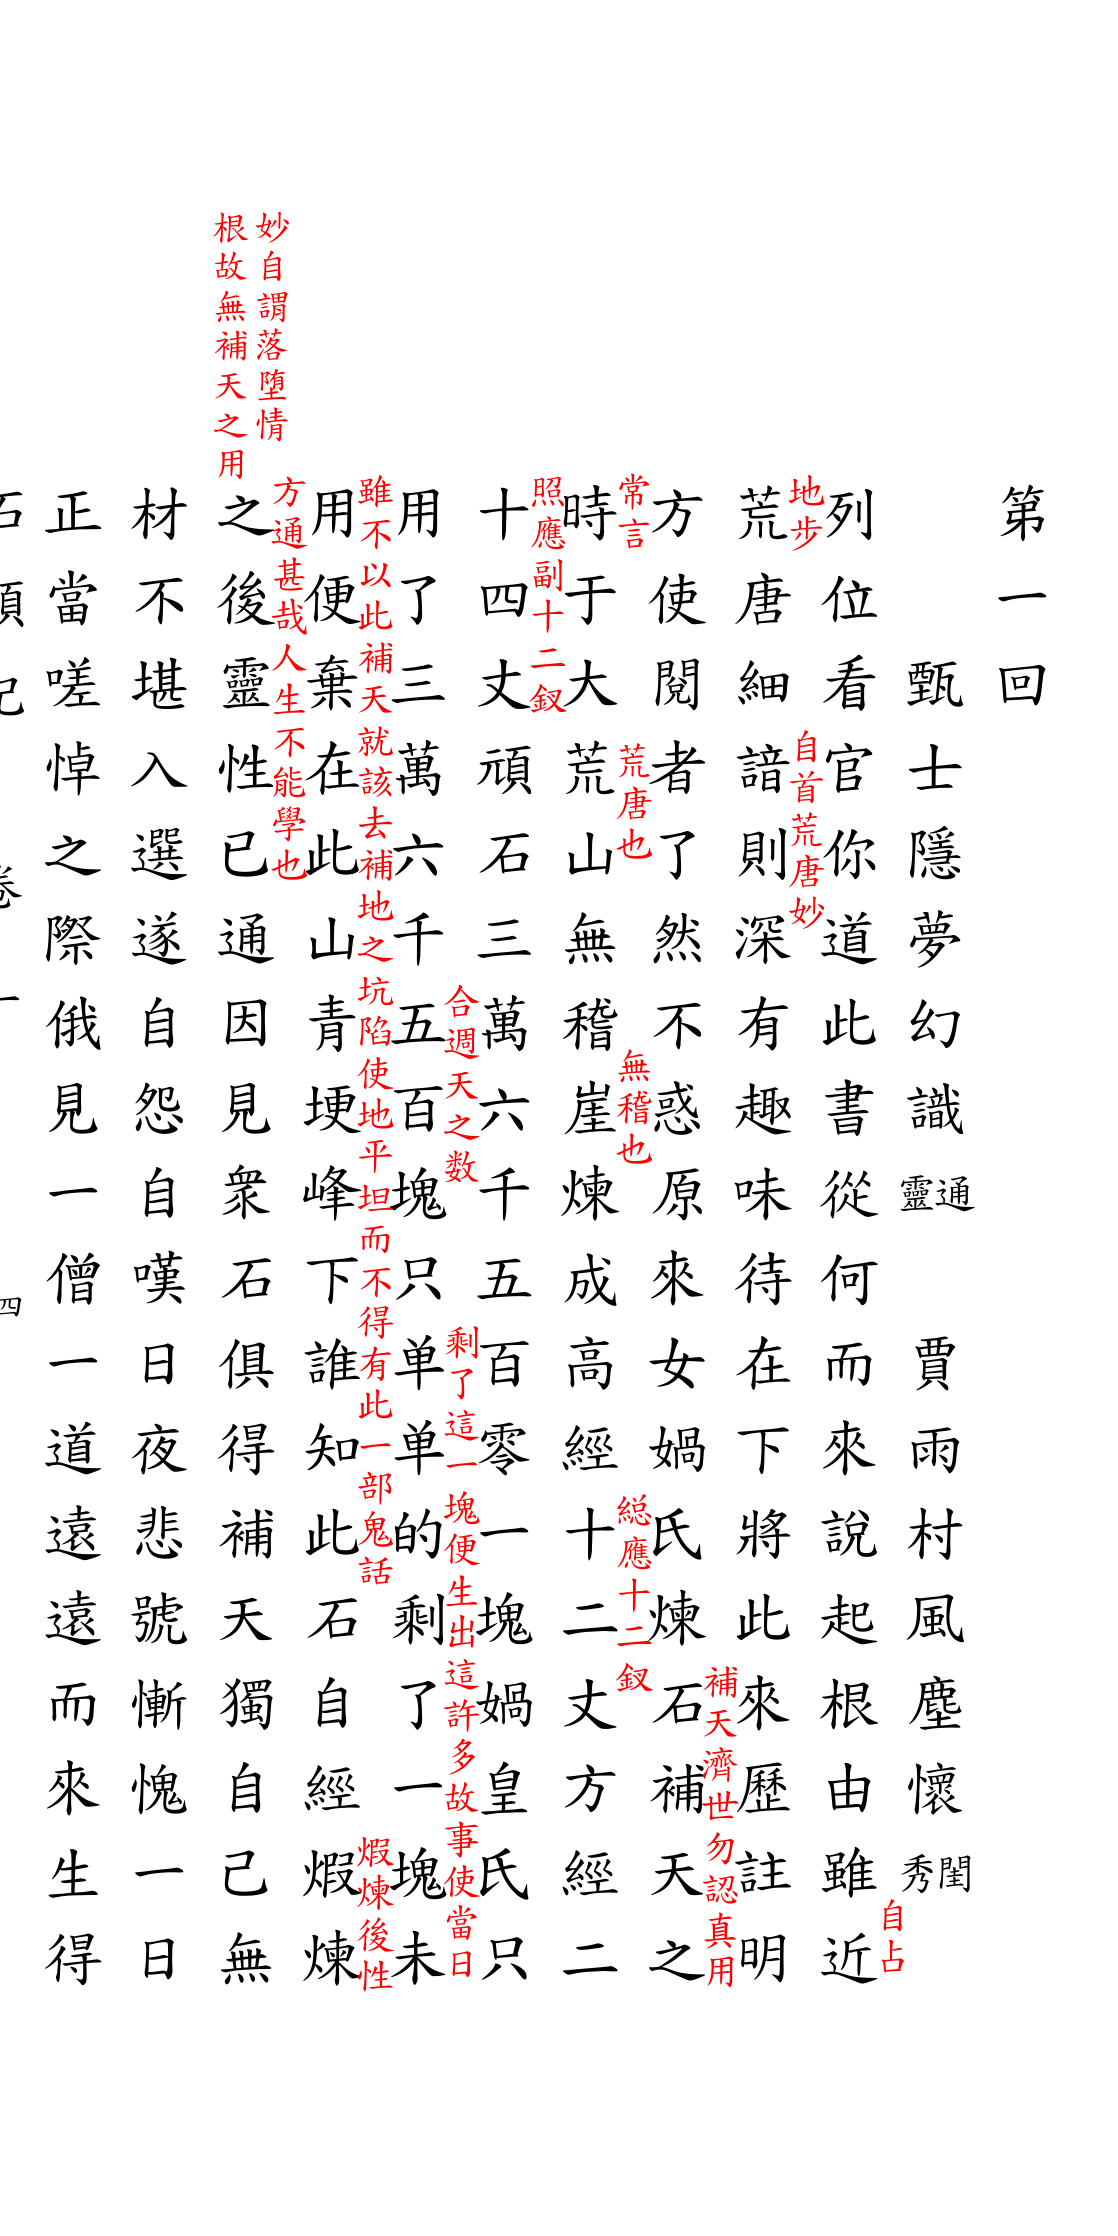 第一回
甄士隱夢幻識通靈　賈雨村風塵懷閨秀
自占
列位看官你道此書從何而來說起根由雖近
地步
自首荒唐妙
荒唐細諳則深有趣味待在下將此來歷註明
補天濟世勿認真用
方使閱者了然不惑原來女媧氏煉石補天之
常言
荒唐也
無稽也
総應十二釵
時于大荒山無稽崖煉成高經十二丈方經二
照應副十二釵
十四丈頑石三萬六千五百零一塊媧皇氏只
合週天之数
剩了這一塊便生出這許多故事使當日
用了三萬六千五百塊只单单的剩了一塊未
雖不以此補天就該去補地之坑陷使地平坦而不得有此一部鬼話
煅煉後性
用便棄在此山青埂峰下誰知此石自經煅煉
方通甚哉人生不能學也
妙自謂落堕情
根故無補天之用
之後靈性已通因見衆石俱得補天獨自己無
材不堪入選遂自怨自嘆日夜悲號慚愧一日
正當嗟悼之際俄見一僧一道遠遠而來生得
四